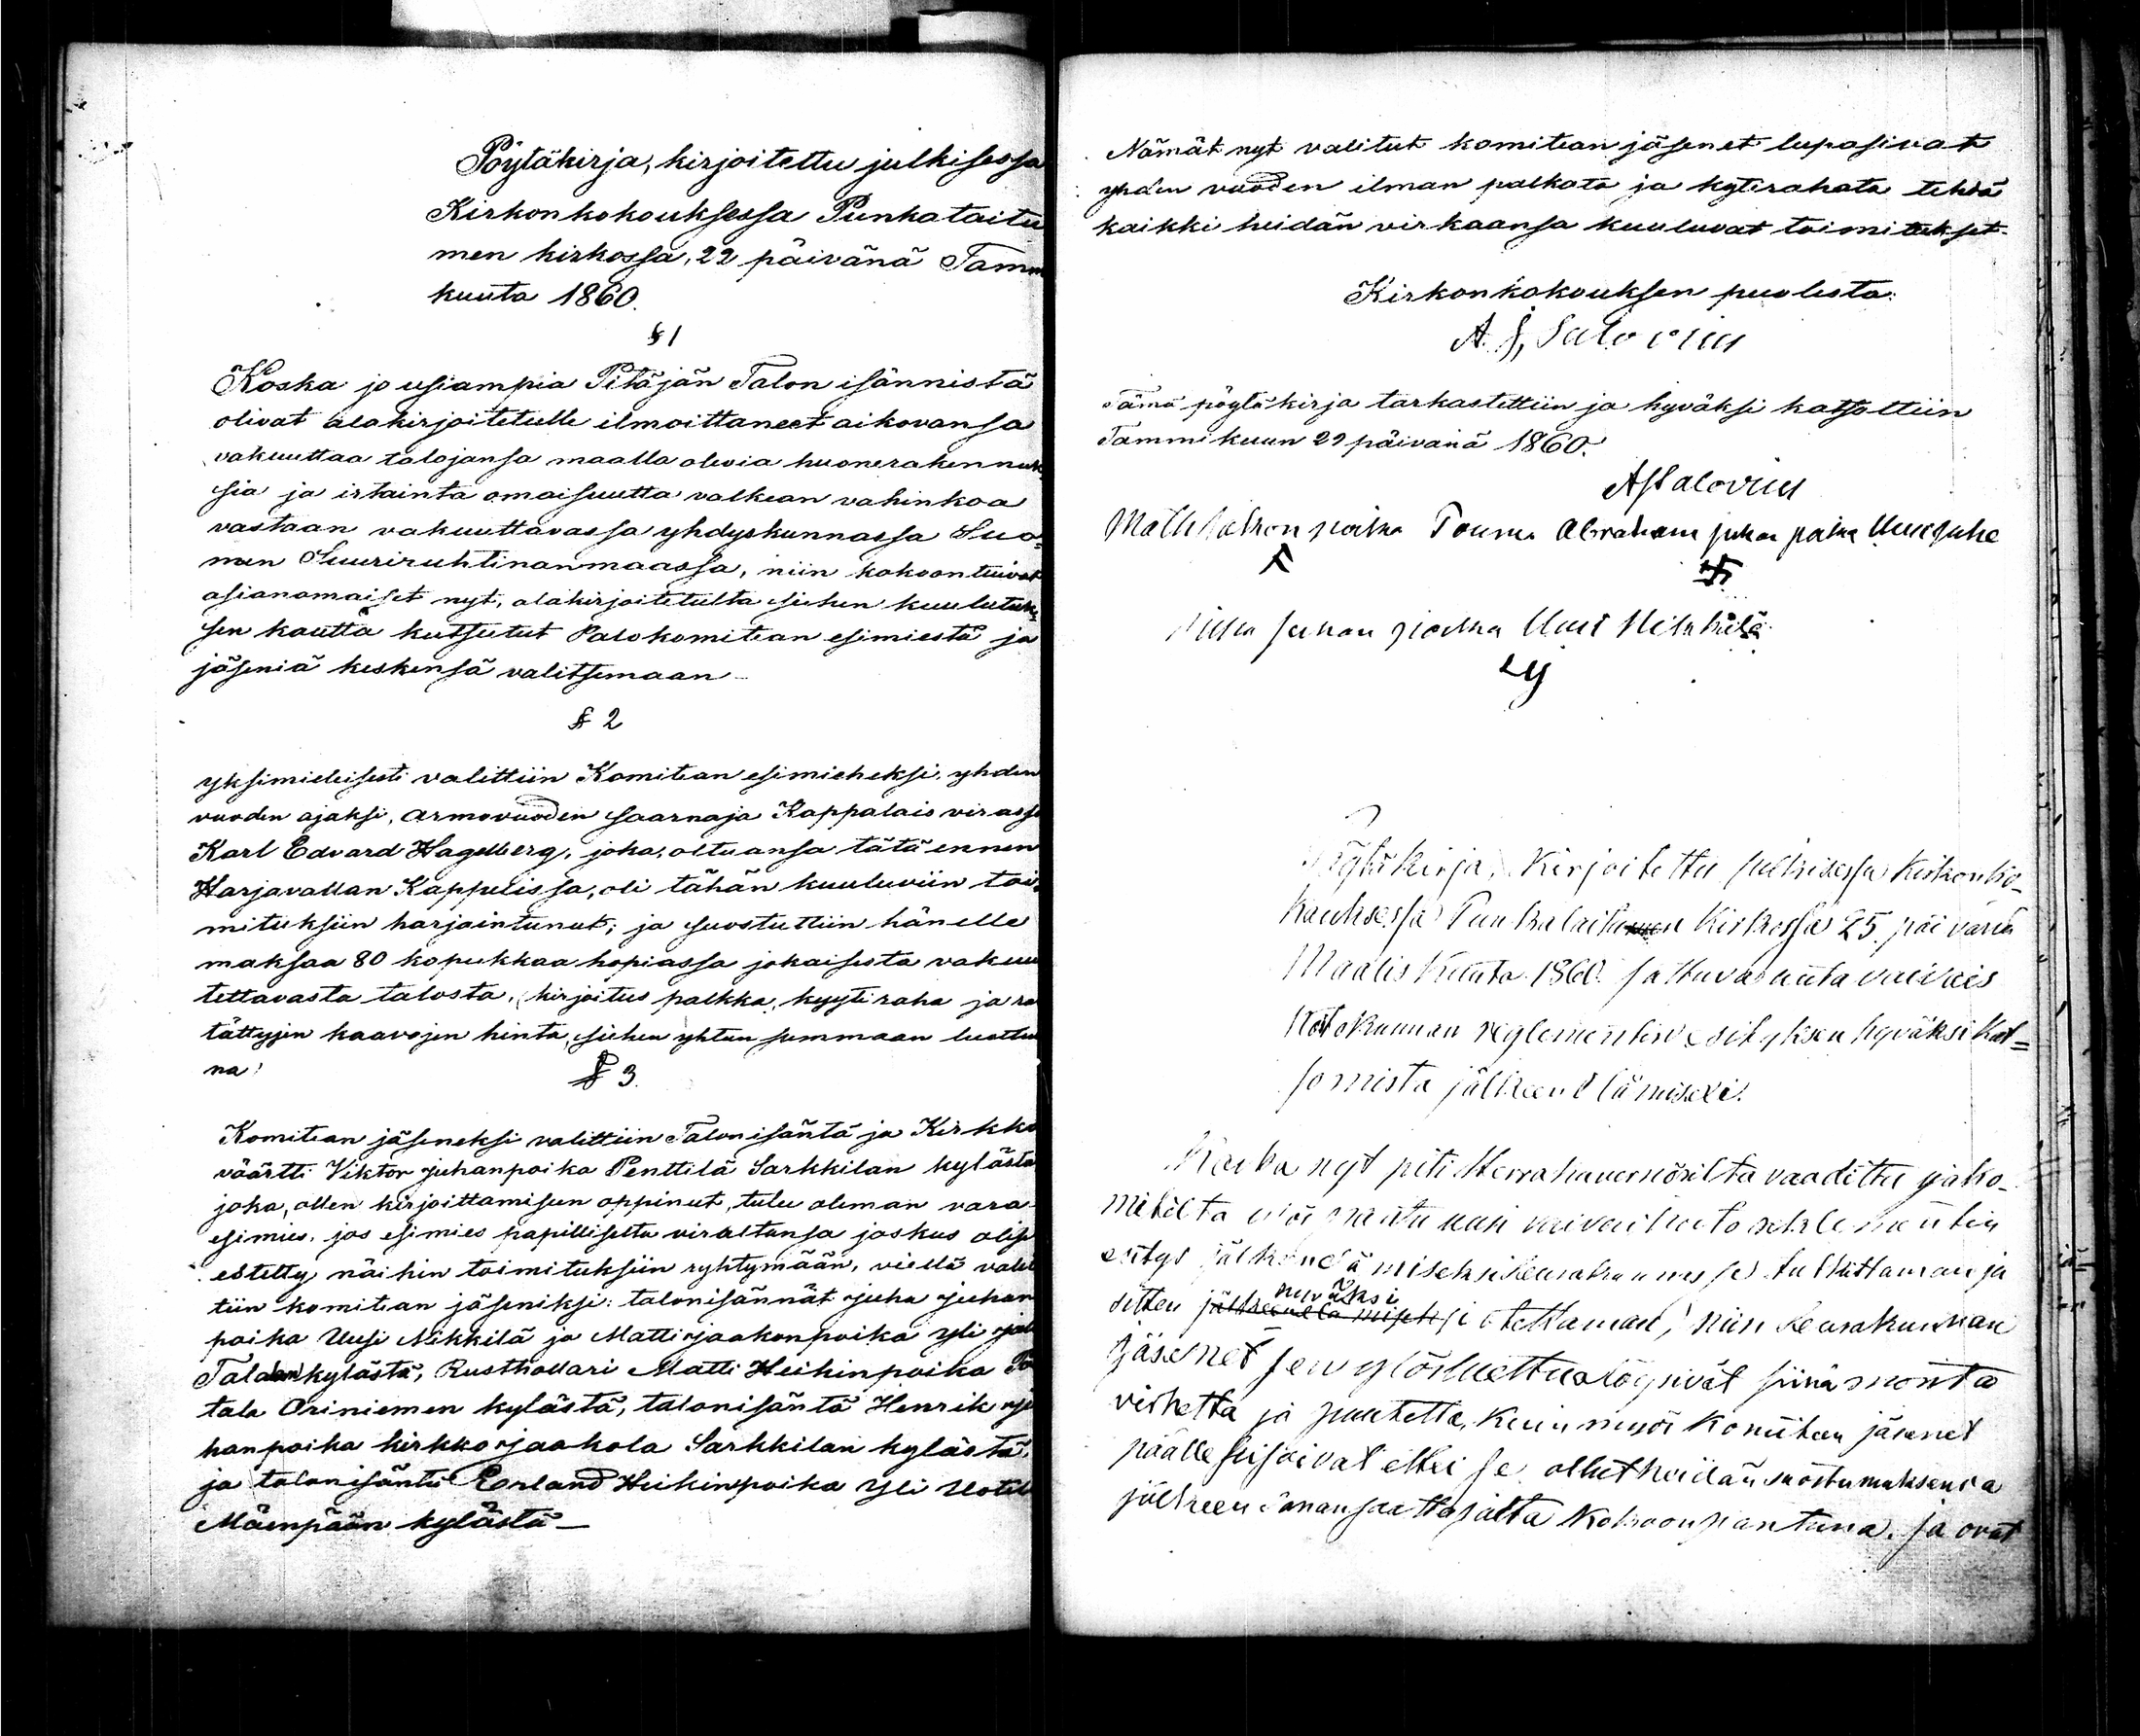 Pöytäkirja, kirjoitettu julkisessa
Kirkonkokouksessa Punkalaitu
men kirkossa, 22 päivänä Tamm
kuuta 1860.
§ 1
Koska jo usiampia Pitäjän Talon isännistä
olivat alakirjoitetulle ilmoittaneet aikovansa
vakuuttaa talojansa maalla olevia huonerakennuk
sia ja irtainta omaisuutta valkean vahinkoa
vastaan vakuuttavassa yhdyskunnassa Suo=
men Suuriruhtinanmaassa, niin kokoontuivat
asianomaiset nyt, alakirjoitetulta siehen kuulutuk
sen kautta kutsutut Palokomitean esimiestä ja
jäseniä keskensä valitsemaan
§ 2
yksimielisesti valittiin Komitean esimieheksi, yhden
vuoden ajaksi, armovuoden saarnaja Kappalais virassa
Karl Edvard Hagelberg, joka, oltuansa tätä ennen
Harjavallan Kappelissa, oli tähän kuuluviin toi
mituksiin harjaintunut; ja suostuttiin hänelle
maksaa 80 kopukkaa hopiassa jokaisesta vakuu
tettavasta talosta, kirjoitus palkka, kyyti raha ja ra
tättyjen kaavojen hinta, siehen yhteen summaan luettu
na
§ 3.
Komitean jäseneksi valittiin Talonisäntä ja Kirkko
väärtti Viktor Juhanpoika Penttilä Sarkkilan kylästä
joka, ollen kirjoittamisen oppinut, tulee oleman vara
esimies, jos esimies papilliselta viraltansa joskus olis
estetty näihin toimituksiin ryhtymään, vielä valit
tiin komitean jäseniksi: talonisännät Juha Juhan
poika Uusi Nikkilä ja Matti Jaakonpoika Yli
Talalan kylästä, Rusthollari Matti Heikinpoika
tala Oriniemen kylästä, talonisäntä Henrik Ju
hanpoika kirkko Jaakola Sarkkilan kylästä,
ja talonisäntä Erland Heikinpoika Yli Uotila
Mäenpään kylästä —
Nämät nyt valitut komitean jäsenet lupasivat
yhden vuoden ilman palkata ja kytirahata tehdä
kaikki heidän virkaansa kuuluvat toimitukset.
Kirkonkokouksen puolesta:
A. J. Salovius
Tämä pöytäkirja tarkastettiin ja hyväksi katsottiin
Tammikuun 29 päivänä 1860.
AJSalovius
Matti poika Abraham Juhan poika
Juhan poika Uusi
Pöytäkirja, Kirjoitettu julkisessa Kirkonko-
kouksessa Punkalaitumen Kirkossa 25. päivänä
Maalis Kuuta 1860. uuta vaivais
Reglementin esityksen hyväksi Kat=
somista
Koska nyt piti Herra kuvernöriltä vaadittu ja ko-
uusi vaivais
esitys ja
hyväksi
sitten otettaman, niin Seurakunnan
Jäsenet sen ylösluettua löysivät siinä monta
virhettä ja puutetta, Kuin myös Komitean jäsenet
päälle seisoivat ettei se ollut heidän suostumuksensa
jälkeen Kokoonpantuna. Ja ovat